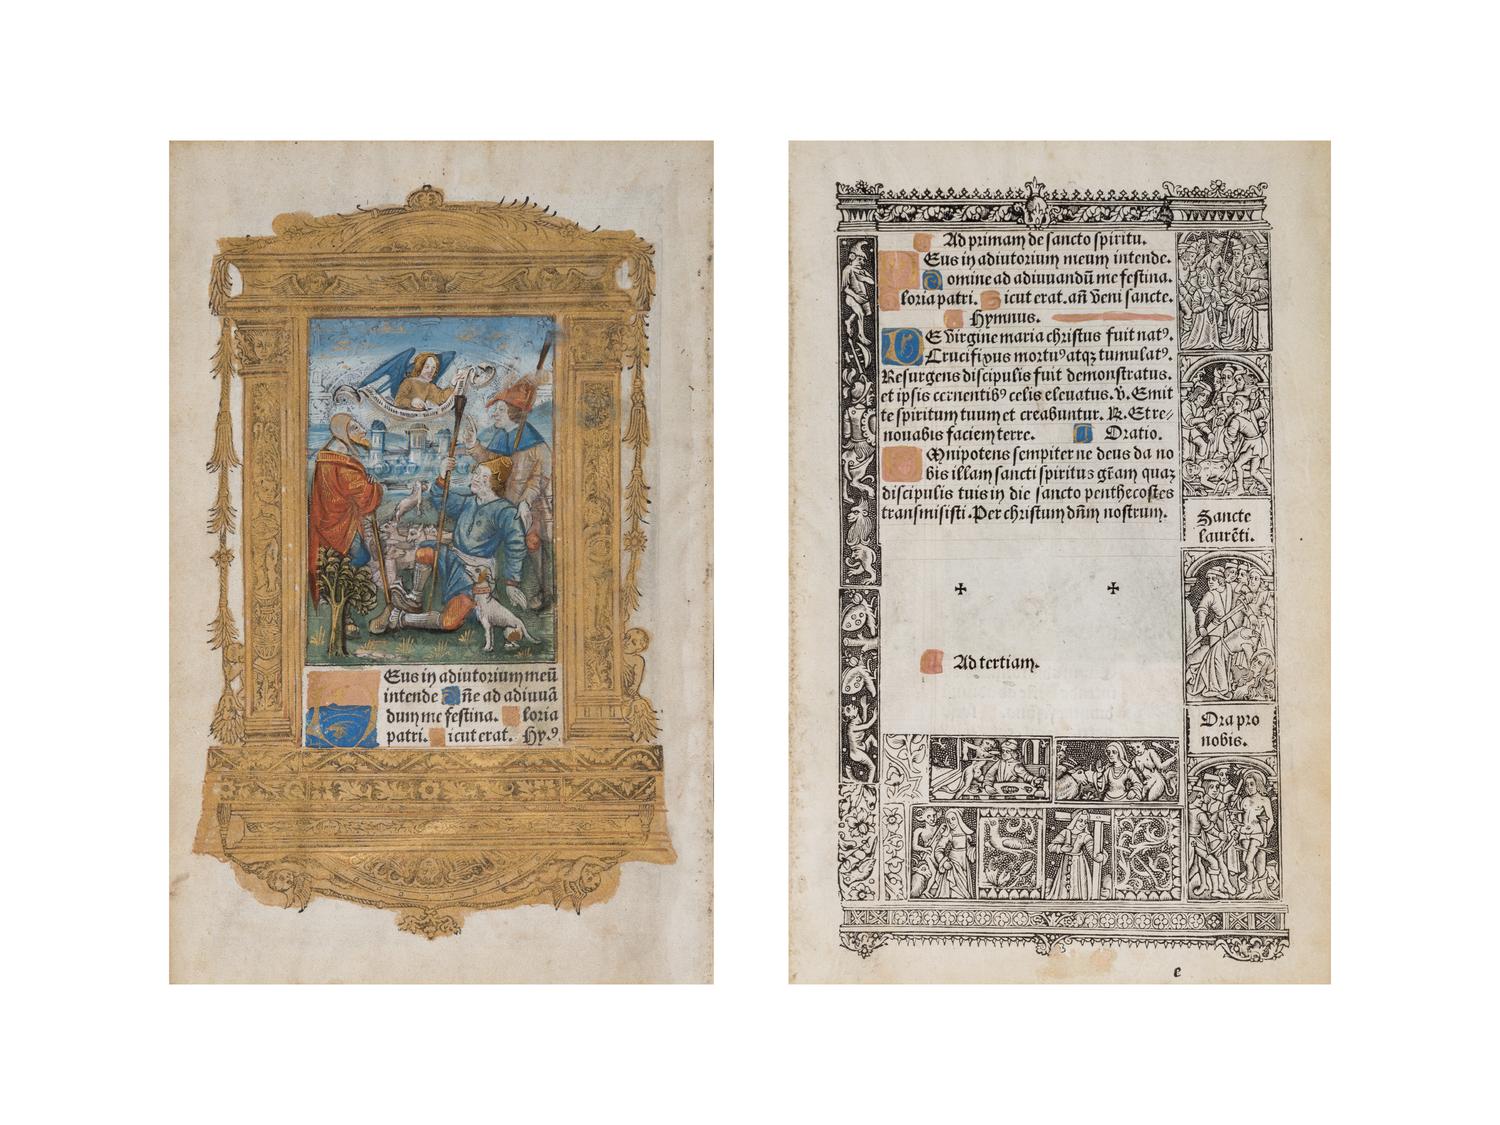 Eus in adiutorium meū
intende Dñe ad adiuuā
dum me festina. Gloria
patri. Sicut erat. Hy.ꝰ
Ad primam de sancto spiritu.
Eus in adiutorium meum intende.
Domine ad adiuuandū me festina.
loria patri. Sicut erat. añ Veni sancte.
Hymnus.
E Virgine maria christus fuit natꝰ.
Crucifixus mortuꝰ atqꝫ tumulatꝰ.
Resurgens discipulis fuit demonstratus.
et ipsis cernentibꝰ celis eleuatus. V. Emit
te spiritum tuum et creabuntur. R. Et re⸗
nouabis faciem terre. Oratio.
Omnipotens sempiterne deus da no
bis illam sancti spiritus gr̄am quaꝫ
discipulis tuis in die sancto penthecostes
transmisisti. Per christum dn̄m nostrum.
✠ ✠
Ad tertiam.
Sancte
laurēti.
Ora pro
nobis.
e